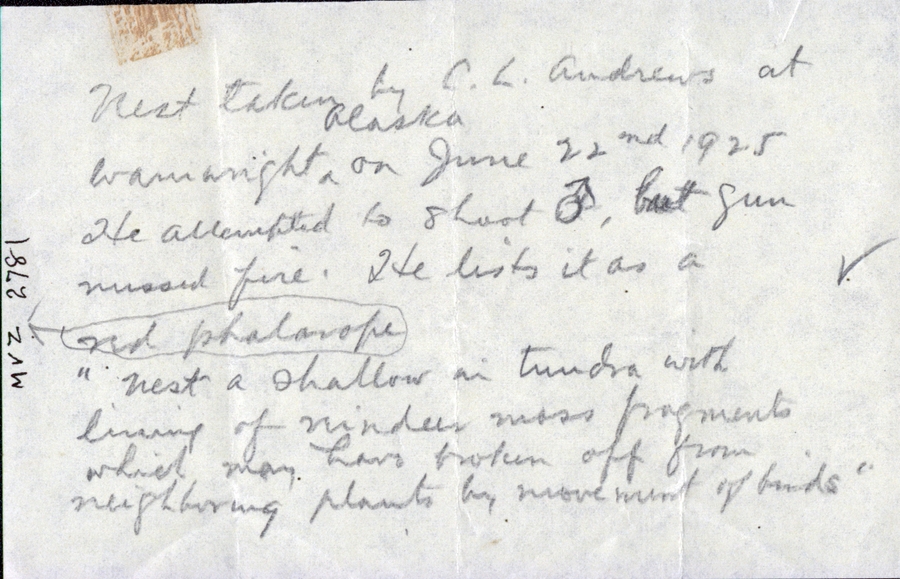 Nest taken by C. L. Andrews at
Alaska
Wainwright ‸ on June 22nd 1925
He attempted to shoot ♂, but gun
missed fire. He lists it as a
red phalarope
" nest a shallow in tundra with
lining of reindeer moss fragments
which may have broken off from
neighboring plants by movement of birds "
MVZ 2781